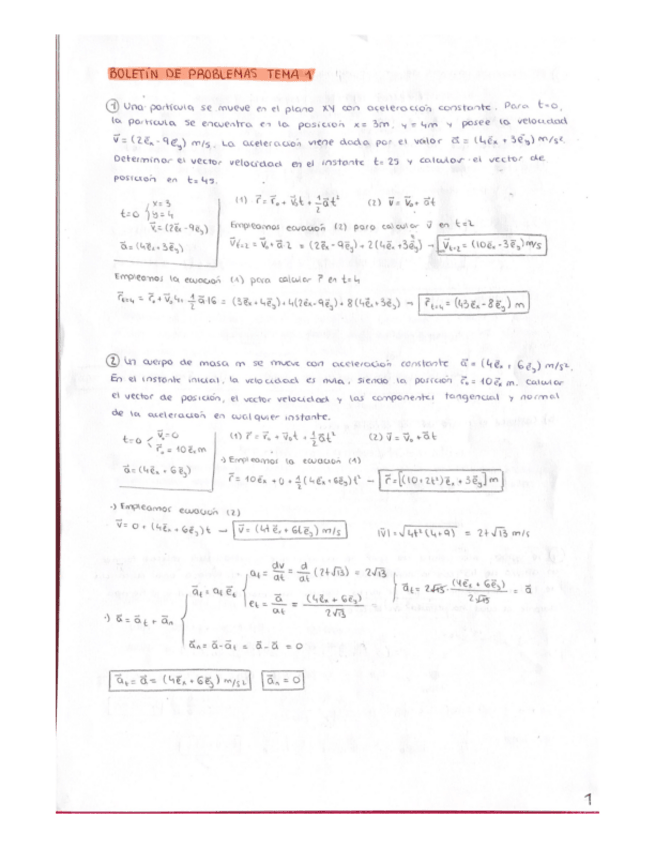 BOLETÍN DE PROBLEMAS TEMA 1
① Una partícula se mueve en el plano XY con aceleración constante. Para t=0,
la partícula se encuentra en la posición x= 3m, y= 4m y posee la velocidad
v⃗ = (2e⃗x - 9e⃗y) m/s. La aceleración viene dada por el valor a⃗ = (4e⃗x + 3e⃗y) m/s².
Determinar el vector velocidad en el instante t= 2s y calcular el vector de
posición en t= 4s.
t=0 x=3 y=4 v⃗₀=(2e⃗x-9e⃗y)
a⃗=(4e⃗x+3e⃗y)
(1) r⃗ = r⃗₀ + v⃗₀t + 1/2 a⃗t² (2) v⃗ = v⃗₀ + a⃗t
Empleamos ecuación (2) para calcular v⃗ en t=2
v⃗t=2 = v⃗₀ + a⃗ 2 = (2e⃗x - 9e⃗y) + 2(4e⃗x + 3e⃗y) → v⃗t=2 = (10e⃗x - 3e⃗y) m/s
Empleamos la ecuación (1) para calcular r⃗ en t=4
r⃗t=4 = r⃗₀ + v⃗₀4 + 1/2 a⃗ 16 = (3e⃗x + 4e⃗y) + 4(2e⃗x - 9e⃗y) + 8(4e⃗x + 3e⃗y) → r⃗t=4 = (43e⃗x - 8e⃗y) m
② Un cuerpo de masa m se mueve con aceleración constante a⃗ = (4e⃗x + 6e⃗y) m/s².
En el instante inicial, la velocidad es nula, siendo la posición r⃗₀ = 10e⃗x m. Calcular
el vector de posición, el vector velocidad y las componentes tangencial y normal
de la aceleración en cualquier instante.
t=0 v⃗₀=0 r⃗₀ = 10e⃗x m
a⃗ = (4e⃗x + 6e⃗y)
(1) r⃗ = r⃗₀ + v⃗₀t + 1/2 a⃗t² (2) v⃗ = v⃗₀ + a⃗t
·) Empleamos la ecuación (1)
r⃗ = 10e⃗x + 0 + 1/2 (4e⃗x + 6e⃗y) t² → r⃗ = [(10 + 2t²) e⃗x + 3e⃗y] m
·) Empleamos ecuación (2)
v⃗ = 0 + (4e⃗x + 6e⃗y) t → v⃗ = (4t e⃗x + 6t e⃗y) m/s |v⃗| = √4t²(4+9) = 2t√13 m/s
·) a⃗ = a⃗t + a⃗n
a⃗t = at e⃗t
at = dv/dt = d/dt (2t√13) = 2√13
e⃗t = a⃗/at = (4e⃗x + 6e⃗y)/2√13
a⃗t = 2√13 · (4e⃗x + 6e⃗y)/2√13 = a⃗
a⃗n = a⃗ - a⃗t = a⃗ - a⃗ = 0
a⃗t = a⃗ = (4e⃗x + 6e⃗y) m/s² a⃗n = 0
1